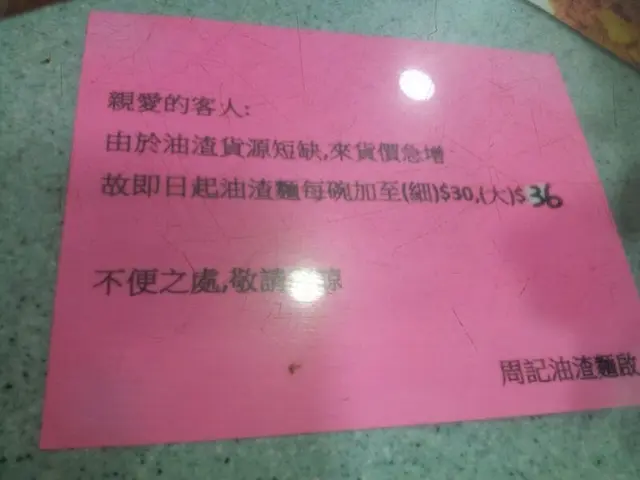 親愛的客人:
由於油渣貨源短缺,來貨價急增
故即日起油渣麵每碗加至(細)$30,(大)$36
不便之處,敬請諒
周記油渣麵啟